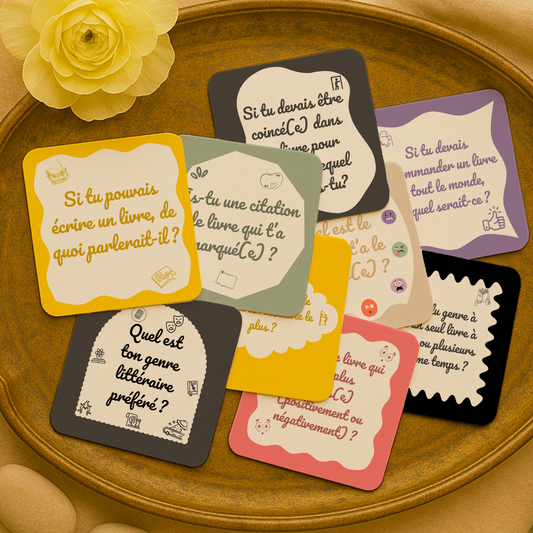 Si tu devais être
coincé(e) dans
livre pour
lequel
-tu?
Si tu devais
mmander un livre
tout le monde,
quel serait-ce ?
Si tu pouvais
écrire un livre, de
quoi parlerait-il ?
s-tu une citation
de livre qui t'a
marqué(e) ?
el est le
t'a le
(e) ?
Quel est
ton genre
littéraire
préféré ?
te le
plus ?
livre qui
plus
(e)
(positivement ou
négativement) ?
du genre à
un seul livre à
ou plusieurs
me temps ?